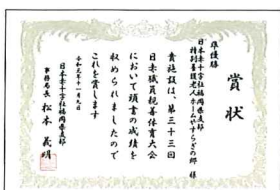 賞状
準優勝
日本赤十字社福岡県支部
特別養護老人ホームやすらぎの郷 様
貴施設は、第三十三回
日赤職員親善体育大会
において頭書の成績を
収められましたので
これを賞します
令和元年十一月九日
日本赤十字社福岡県支部
事務局長 松本義明